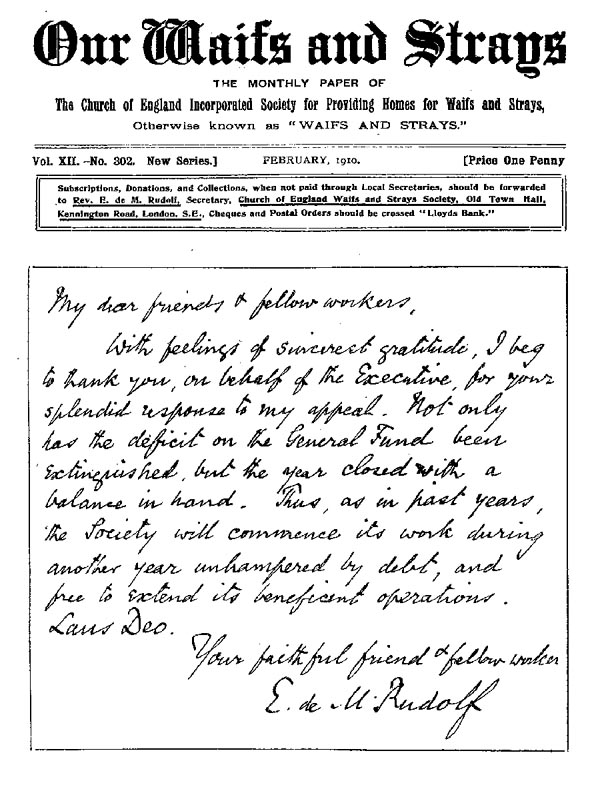 Our Waifs and Strays
THE MONTHLY PAPER OF
The Church of England Incorporated Society for Providing Homes for Waifs and Strays,
Otherwise known as "WAIFS AND STRAYS."
Vol. XII.-No. 302. New Series.] FEBRUARY, 1910. [Price One Penny
Subscriptions, Donations, and Collections, when not paid through Local Secretaries, should be forwarded
to Rev. E. de M. Rudolf, Secretary, Church of England Waifs and Strays Society, Old Town Hall,
Kennington Road, London, S.E., Cheques and Postal Orders should be crossed "Lloyds Bank."
My dear friends & fellow workers,
With feelings of sincerest gratitude, I beg
to thank you, on behalf of the Executive, for your
splendid response to my appeal. Not only
has the deficit on the General Fund been
extinguished, but the year closed with a
balance in hand. Thus, as in past years,
the Society will commence its work during
another year unhampered by debt, and
free to extend its beneficent operations.
Laus Deo.
Your faithful friend & fellow worker
E. de M. Rudolf